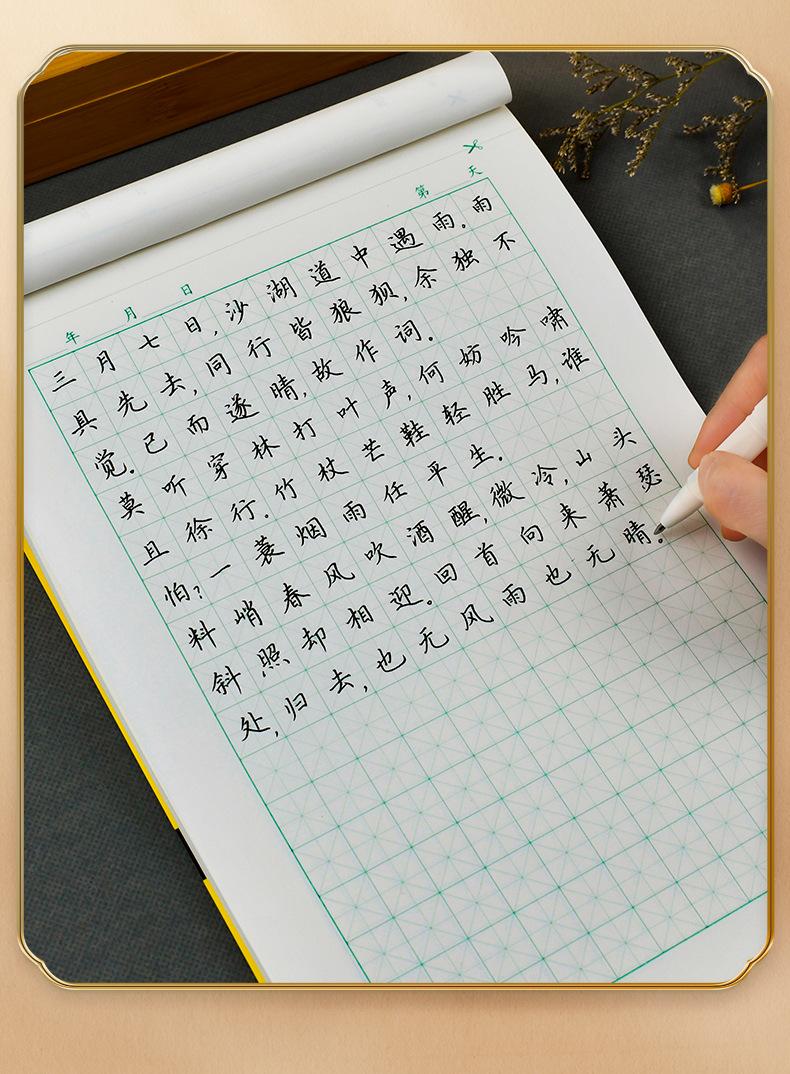 年 月 日 第 天
三月七日,沙湖道中遇雨。雨
具先去,同行皆狼狈,余独不
觉。已而遂晴,故作词。
莫听穿林打叶声,何妨吟啸
且徐行。竹杖芒鞋轻胜马,谁
怕?一蓑烟雨任平生。
料峭春风吹酒醒,微冷,山头
斜照却相迎。回首向来萧瑟
处,归去,也无风雨也无晴。